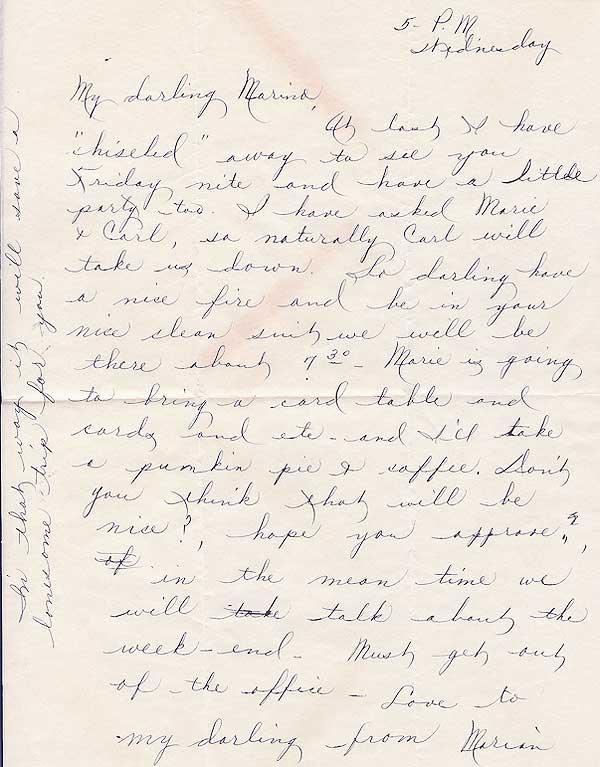 5- P.M
Wednesday
My darling Marino,
At last I have
"chiseled" away to see you
Friday nite and have a little
party too. I have asked Marie
& Carl, so naturally Carl will
take us down. So darling have
a nice fire and be in your
nice clean suit we will be
there about 7 30 - Marie is going
to bring a card table and
cards and etc - and I'll take
a pumkin pie & coffee. Don't
you think that will be
nise?, hope you approve?,
of
in the mean time we
will take talk about the
week-end - Must get out
of the office - Love to
my darling from Marian
In that way it will save a
lonesome trip for you.